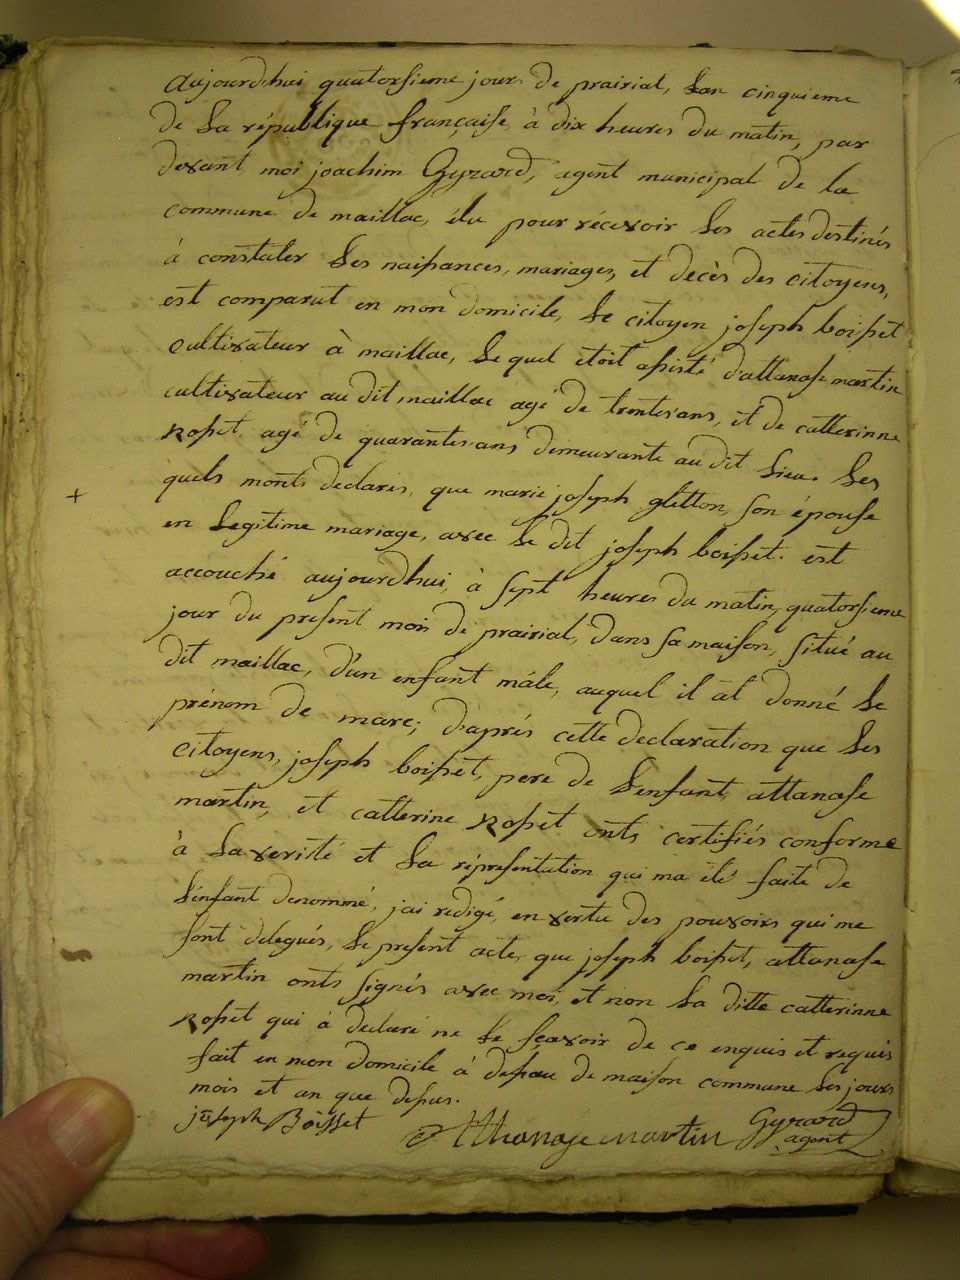 aujourd'hui quatorsieme jour de prairial, Lan cinquieme
de La république française, à dix heures du matin, par
devant moi joachim Gyrard, agent municipal de la
commune de maillac, élu pour récevoir Les actes destinés
à constater Les naissances, mariages, et decès des citoyens,
est comparut en mon domicile, Le citoyen joseph boisset
cultivateur à maillac, Le quel étoit assisté d'attanase martin
cultivateur au dit maillac agé de trentes ans, et de catterinne
Rosset agé de quarantes ans demeurante au dit Lieu. Les
quels monts declarés, que marie joseph gletton, son épouse
en Legitime mariage, avec Le dit joseph boisset. est
accouché aujourdhui, à sept heures du matin, quatorsieme
jour du present mois de prairial, dans sa maison, situé au
dit maillac, d'un enfant mâle, auquel il at donné Le
prénom de marc; d'aprés cette declaration que Les
citoyens, joseph boisset, pere de L'enfant, attanase
martin, et catterine Rosset onts certifiés conforme
à La verité et La répresentation qui ma été faite de
L'enfant denommé, j'ai redigé, en vertu des pouvoirs qui me
sont delegués, Le present acte, que joseph boisset, attanase
martin onts signés avec moi, et non La ditte catterinne
Rosset qui à declaré ne Le sçavoir de ce enquis et requis
fait en mon domicile à defsau de maison commune Les jours
mois et an que desus.
joseph Boisset Athanase martin Gyrard
agent
+